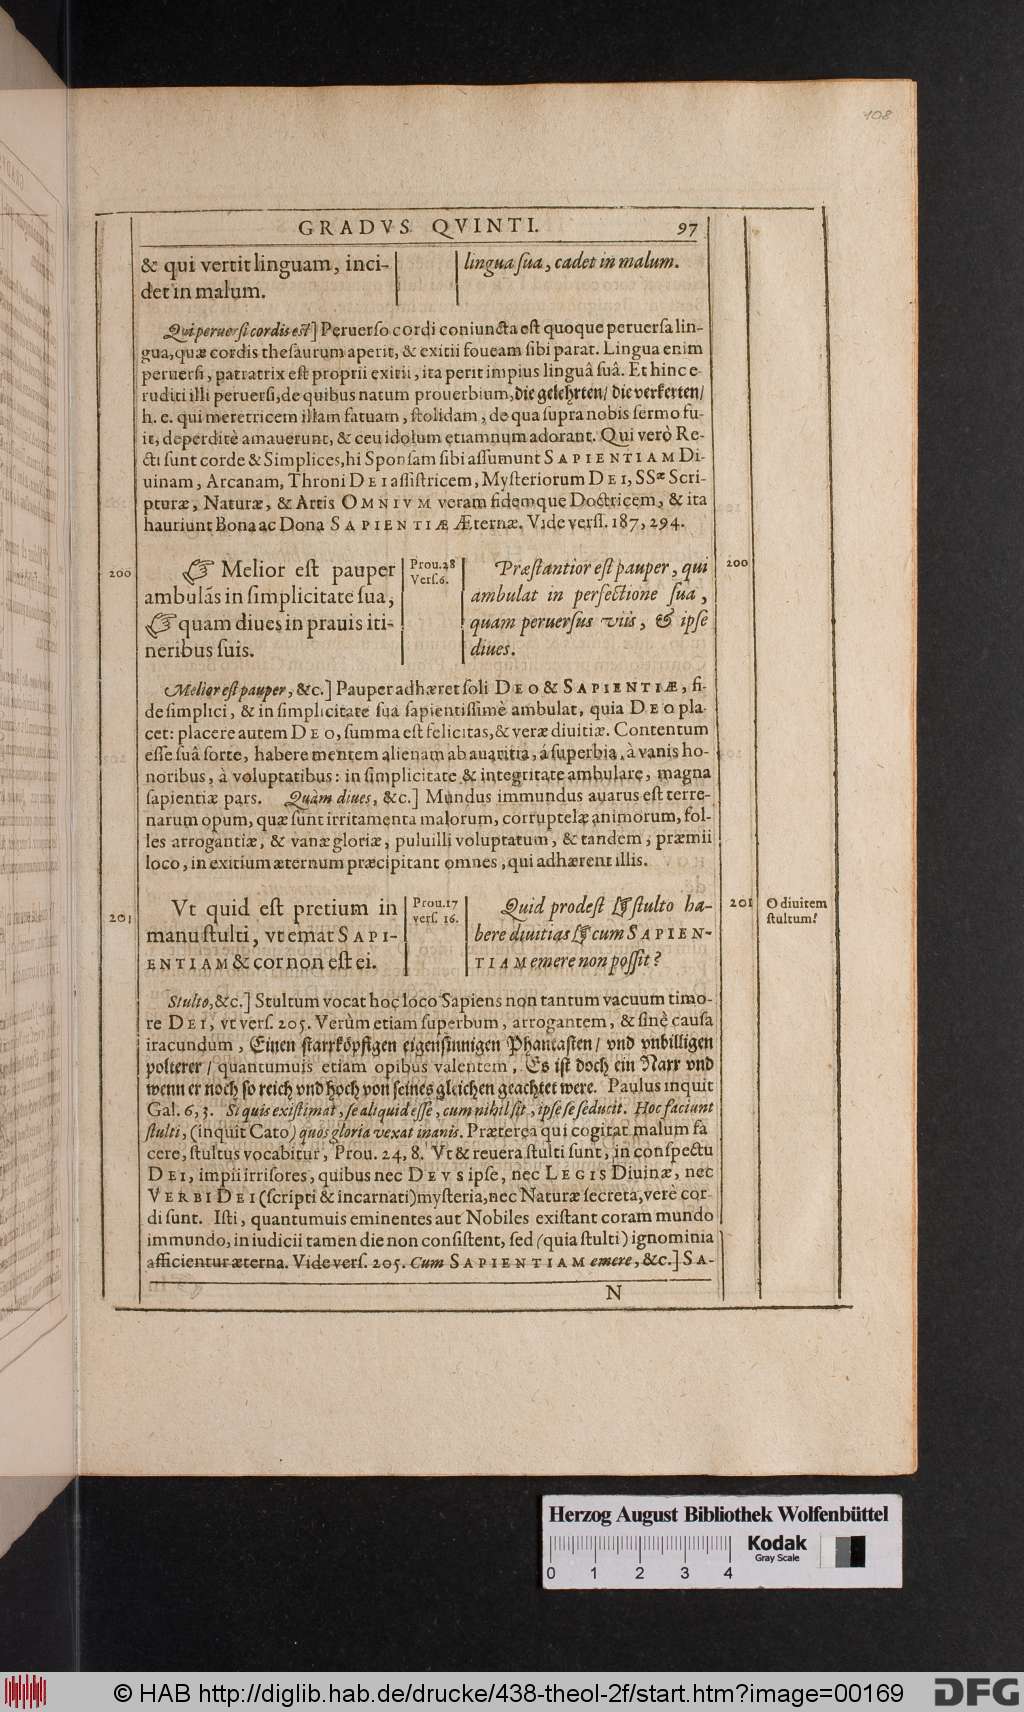 108
GRADVS QVINTI. 97
& qui vertit linguam, inci-
det in malum.
lingua sua, cadet in malum.
Qui peruersi cordis est] Peruerso cordi coniuncta est quoque peruersa lin-
gua, quæ cordis thesaurum aperit, & exitii foueam sibi parat. Lingua enim
peruersi, patratrix est proprii exitii, ita perit impius linguâ suâ. Et hinc e-
ruditi illi peruersi, de quibus natum prouerbium, die gelehrten/ die verkerten/
h. e. qui meretricem illam fatuam, stolidam, de qua supra nobis sermo fu-
it, deperditè amauerunt, & ceu idolum etiamnum adorant. Qui verò Re-
cti sunt corde & Simplices, hi Sponsam sibi assumunt SAPIENTIAM Di-
uinam, Arcanam, Throni DEI assistricem, Mysteriorum DEI, SSæ Scri-
pturæ, Naturæ, & Artis OMNIVM veram fidemque Doctricem, & ita
hauriunt Bona ac Dona SAPIENTIÆ Æternæ. Vide vers. 187, 294.
200
☞ Melior est pauper
ambulãs in simplicitate sua,
☞ quam diues in prauis iti-
neribus suis.
Prou. 28
Vers. 6.
Præstantior est pauper, qui
ambulat in perfectione sua,
quam peruersus viis, & ipse
diues.
200
Melior est pauper, &c.] Pauper adhæret soli DEO & SAPIENTIÆ, fi-
de simplici, & in simplicitate sua sapientissimè ambulat, quia DEO pla-
cet: placere autem DEO, summa est felicitas, & veræ diuitiæ. Contentum
esse suâ sorte, habere mentem alienam ab auaritia, á superbia, à vanis ho-
noribus, à voluptatibus: in simplicitate & integritate ambulare, magna
sapientiæ pars. Quàm diues, &c.] Mundus immundus auarus est terre-
narum opum, quæ sunt irritamenta malorum, corruptelæ animorum, fol-
les arrogantiæ, & vanæ gloriæ, puluilli voluptatum, & tandem, præmii
loco, in exitium æternum præcipitant omnes, qui adhærent illis.
201
Vt quid est pretium in
manu stulti, vt emat SAPI-
ENTIAM & cor non est ei.
Prou. 17
vers. 16.
Quid prodest ☞ stulto ha-
bere diuitias ☞ cum SAPIEN-
TIAM emere non possit?
201
O diuitem
stultum!
Stulto, &c.] Stultum vocat hoc loco Sapiens non tantum vacuum timo-
re DEI, vt vers. 205. Verùm etiam superbum, arrogantem, & sinè causa
iracundum, Einen starrköpfigen eigensinnigen Phantasten/ vnd vnbilligen
polterer/ quantumuis etiam opibus valentem, Es ist doch ein Narr vnd
wenn er noch so reich vnd hoch von seines gleichen geachtet were. Paulus inquit
Gal. 6, 3. Si quis existimat, se aliquid esse, cum nihil sit, ipse se seducit. Hoc faciunt
stulti, (inquit Cato) quos gloria vexat inanis. Præterea qui cogitat malum fa
cere, stultus vocabitur, Prou. 24, 8. Vt & reuera stulti sunt, in conspectu
DEI, impii irrisores, quibus nec DEVS ipse, nec LEGIS Diuinæ, nec
VERBI DEI (scripti & incarnati) mysteria, nec Naturæ secreta, verè cor-
di sunt. Isti, quantumuis eminentes aut Nobiles existant coram mundo
immundo, in iudicii tamen die non consistent, sed (quia stulti) ignominia
afficientur æterna. Vide vers. 205. Cum SAPIENTIAM emere, &c.] SA-
N
Herzog August Bibliothek Wolfenbüttel
0 1 2 3 4
Kodak
Gray Scale
© HAB http://diglib.hab.de/drucke/438-theol-2f/start.htm?image=00169
DFG